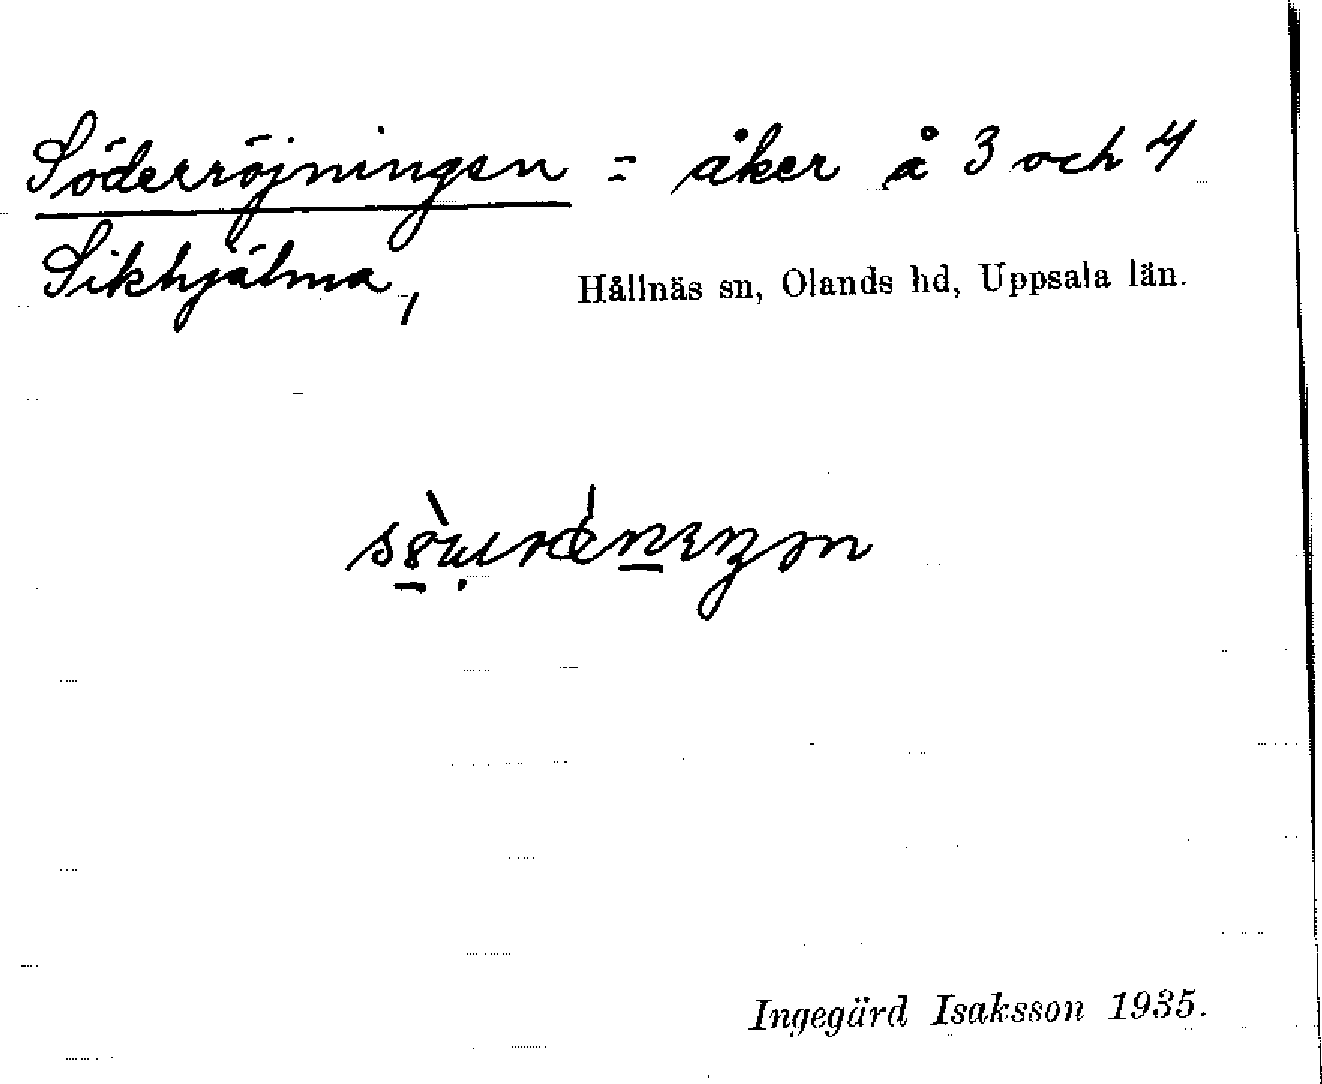 Söderröjningen = åker å 3 och 4
Sikhjälma,
Hållnäs sn, Olands hd, Uppsala län.
Ingegärd Isaksson 1935.